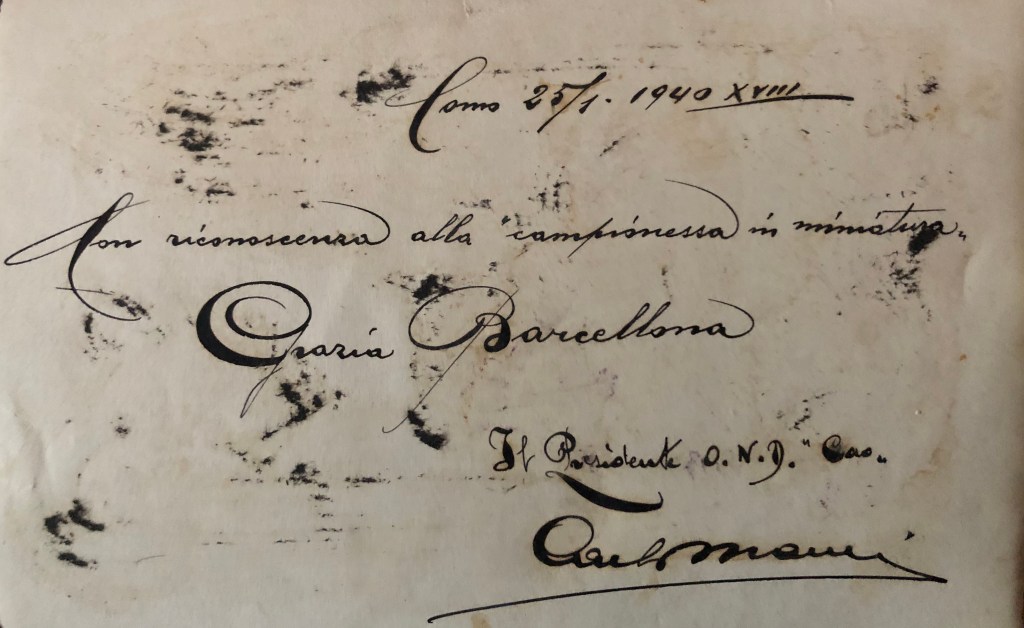 Como 25/1. 1940 XVIII
Con riconoscenza alla "campionessa in miniatura"
Grazia Barcellona
Il Presidente O.N.D. "Cao"
Carlo